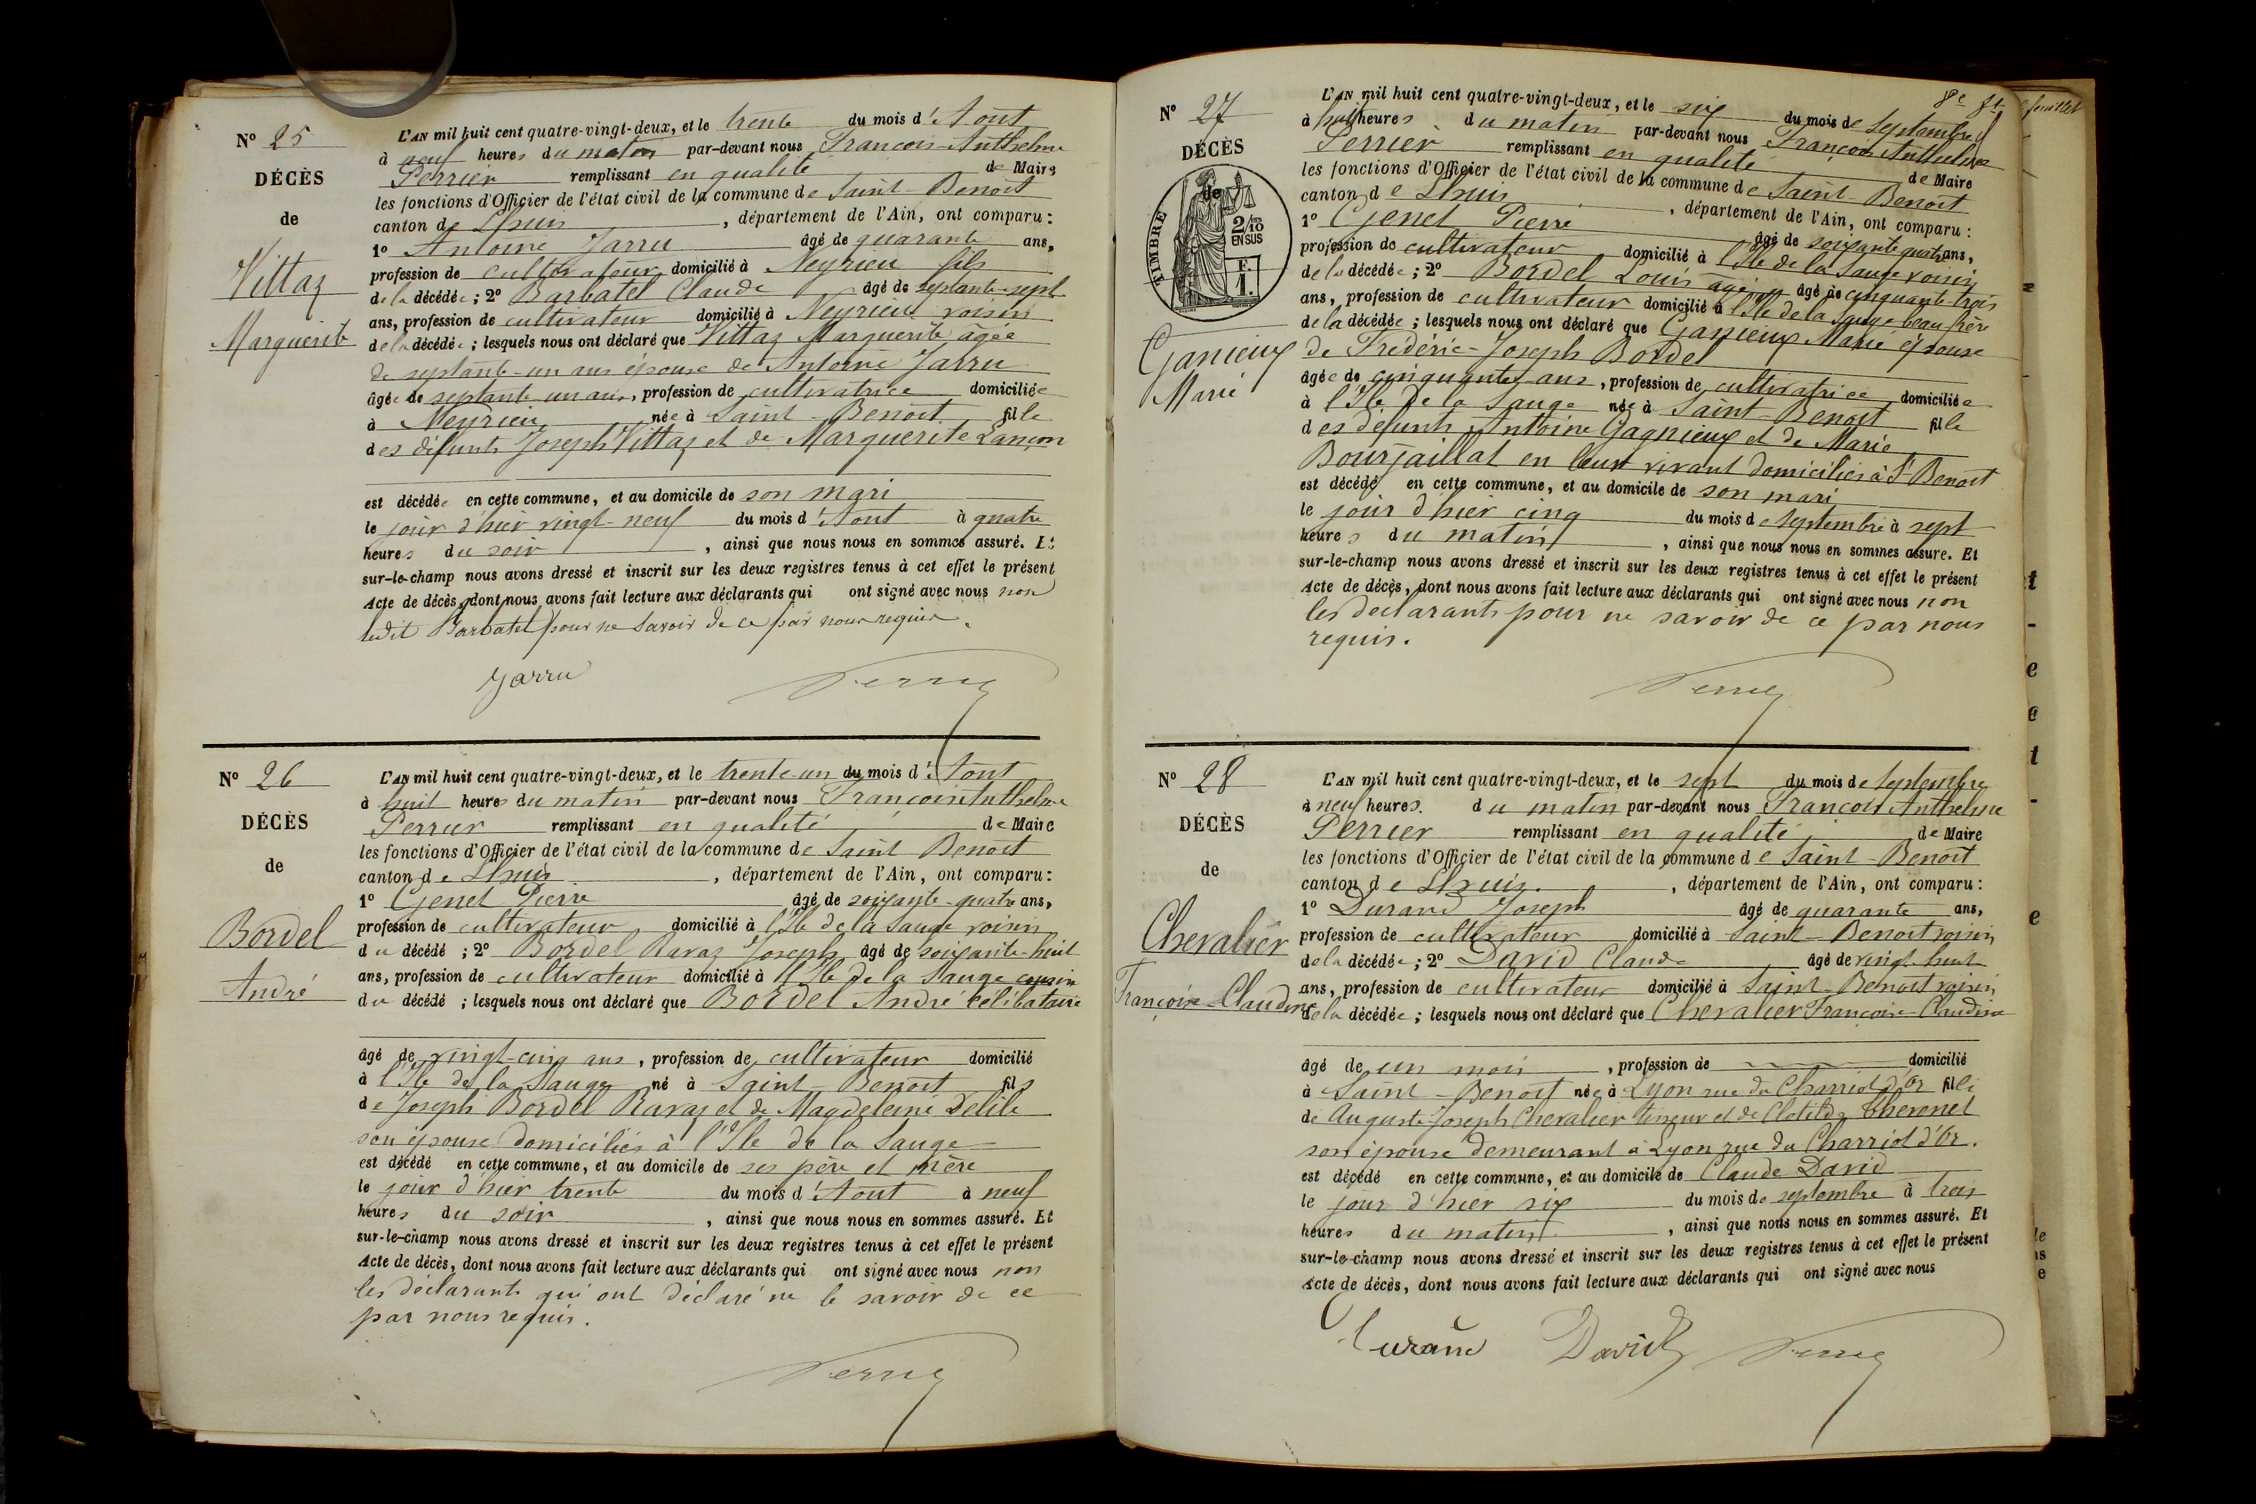 N° 25
DÉCÈS
de
Vittaz
Marguerite
L'AN mil huit cent quatre-vingt-deux, et le trente du mois d'Aout
à neuf heures du matin par-devant nous François Anthelme
Perrier remplissant en qualité de Maire
les fonctions d'Officier de l'état civil de la commune de Saint-Benoit
canton de Lhuis, département de l'Ain, ont comparu :
1° Antoine Jarru âgé de quarante ans,
profession de cultivateur domicilié à Neyrieu fils
de la décédée ; 2° Barbatel Claude âgé de septante-sept
ans, profession de cultivateur domicilié à Neyrieu voisin
de la décédée ; lesquels nous ont déclaré que Vittaz Marguerite agée
de septante-un ans épouse de Antoine Jarru
âgée de septante un ans, profession de cultivatrice domiciliée
à Neyrieu née à Saint-Benoit fille
des défunts Joseph Vittaz et de Marguerite Lançon
est décédée en cette commune, et au domicile de son mari
le jour d'hier vingt-neuf du mois d'Aout à quatre
heures du soir, ainsi que nous nous en sommes assuré. Et
sur-le-champ nous avons dressé et inscrit sur les deux registres tenus à cet effet le présent
Acte de décès, dont nous avons fait lecture aux déclarants qui ont signé avec nous non
ledit Barbatel pour ne savoir de ce par nous requis.
Jarru Perrier
N° 26
DÉCÈS
de
Bordel
André
L'AN mil huit cent quatre-vingt-deux, et le trente-un du mois d'Aout
à huit heures du matin par-devant nous François Anthelme
Perrier remplissant en qualité de Maire
les fonctions d'Officier de l'état civil de la commune de Saint Benoit
canton de Lhuis, département de l'Ain, ont comparu :
1° Genet Pierre âgé de soixante-quatre ans,
profession de cultivateur domicilié à l'Ile de la Sauge voisin
du décédé ; 2° Bordel Ravaz Joseph âgé de soixante-huit
ans, profession de cultivateur domicilié à l'Ile de la Sauge cousin
du décédé ; lesquels nous ont déclaré que Bordel André célibataire
âgé de vingt-cinq ans, profession de cultivateur domicilié
à l'Ile de la Sauge né à Saint-Benoit fils
de Joseph Bordel Ravaz et de Magdeleine Delile
son épouse domiciliés à l'Ile de la Sauge
est décédé en cette commune, et au domicile de ses père et mère
le jour d'hier trente du mois d'Aout à neuf
heures du soir, ainsi que nous nous en sommes assuré. Et
sur-le-champ nous avons dressé et inscrit sur les deux registres tenus à cet effet le présent
Acte de décès, dont nous avons fait lecture aux déclarants qui ont signé avec nous non
les déclarants qui ont déclaré ne le savoir de ce
par nous requis.
Perrier
8e ft
feuillet
N° 27
DÉCÈS
de
TIMBRE
2/10
EN SUS
F.
1.
Ganieux
Marie
L'AN mil huit cent quatre-vingt-deux, et le six du mois de Septembre
à huit heures du matin par-devant nous François Anthelme
Perrier remplissant en qualité de Maire
les fonctions d'Officier de l'état civil de la commune de Saint-Benoit
canton de Lhuis, département de l'Ain, ont comparu :
1° Genet Pierre âgé de soixante quatre ans,
profession de cultivateur domicilié à l'Ile de la Sauge voisin
de la décédée ; 2° Bordel Louis âgé de cinquante-trois
ans, profession de cultivateur domicilié à l'Ile de la Sauge beau frère
de la décédée ; lesquels nous ont déclaré que Ganieux Marie épouse
de Frédéric-Joseph Bordel
âgée de cinquante ans, profession de cultivatrice domiciliée
à l'Ile de la Sauge née à Saint-Benoit fille
des défunts Antoine Gagnieux et de Marie
Bourjaillat en leur vivant domiciliés à St Benoit
est décédé en cette commune, et au domicile de son mari
le jour d'hier cinq du mois de septembre à sept
heures du matin, ainsi que nous nous en sommes assuré. Et
sur-le-champ nous avons dressé et inscrit sur les deux registres tenus à cet effet le présent
Acte de décès, dont nous avons fait lecture aux déclarants qui ont signé avec nous non
les déclarants pour ne savoir de ce par nous
requis.
Perrier
N° 28
DÉCÈS
de
Chevalier
Françoise-Claudine
L'AN mil huit cent quatre-vingt-deux, et le sept du mois de Septembre
à neuf heures du matin par-devant nous François Anthelme
Perrier remplissant en qualité de Maire
les fonctions d'Officier de l'état civil de la commune de Saint-Benoit
canton de Lhuis, département de l'Ain, ont comparu :
1° Durand Joseph âgé de quarante ans,
profession de cultivateur domicilié à Saint-Benoit voisin
de la décédée ; 2° David Claude âgé de vingt-huit
ans, profession de cultivateur domicilié à Saint-Benoit voisin
de la décédée ; lesquels nous ont déclaré que Chevalier Françoise-Claudine
âgé de un mois, profession de domicilié
à Saint-Benoit née à Lyon rue du Charriot d'Or fille
de Auguste Joseph Chevalier tisseur et de Clotilde Thevenet
son épouse demeurant à Lyon rue du Charriot d'Or.
est décédé en cette commune, et au domicile de Claude David
le jour d'hier six du mois de septembre à trois
heures du matin, ainsi que nous nous en sommes assuré. Et
sur-le-champ nous avons dressé et inscrit sur les deux registres tenus à cet effet le présent
Acte de décès, dont nous avons fait lecture aux déclarants qui ont signé avec nous
Durand David Perrier